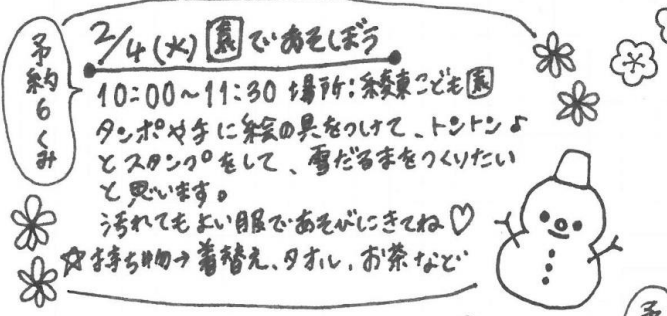 予約6くみ
2/4(火) 園であそぼう
10:00~11:30 場所:綾東こども園
タンポや手に絵の具をつけて、トントン♪
とスタンプをして、雪だるまをつくりたい
と思います。
汚れてもよい服であそびにきてね♡
☆持ち物→着替え、タオル、お茶など